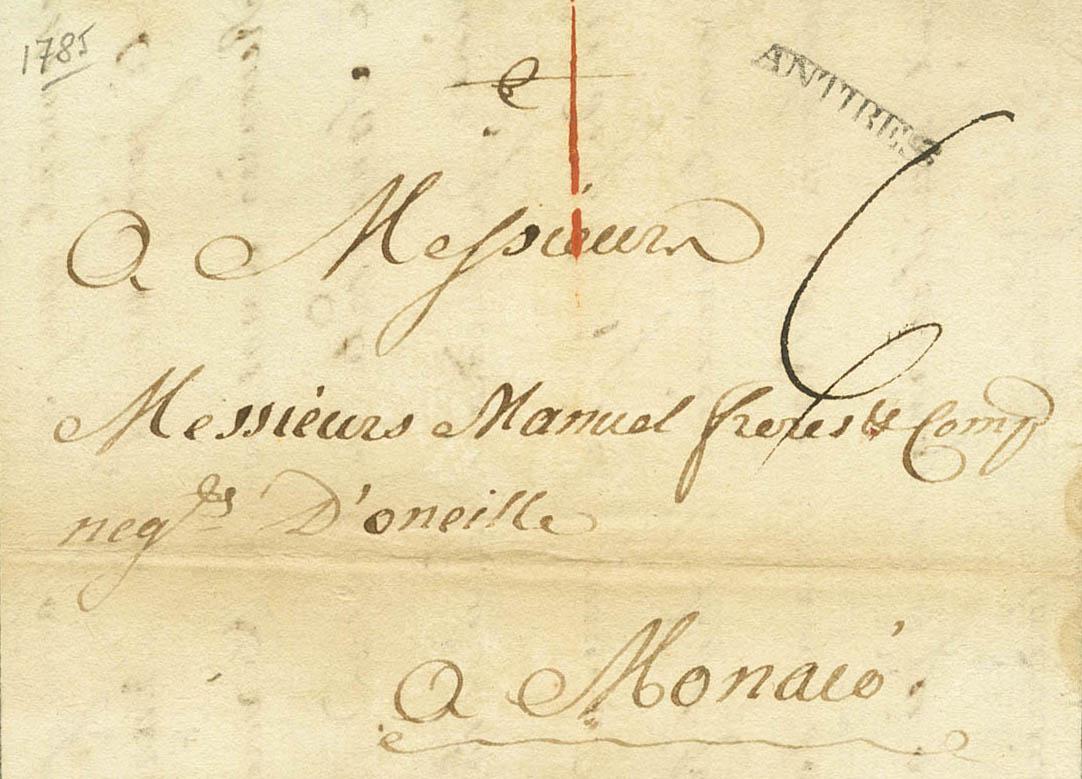 1785
ANTIBES
6
A Messieurs
Messieurs Manuel freres & Comp
neg.ts D'oneille
A Monaco